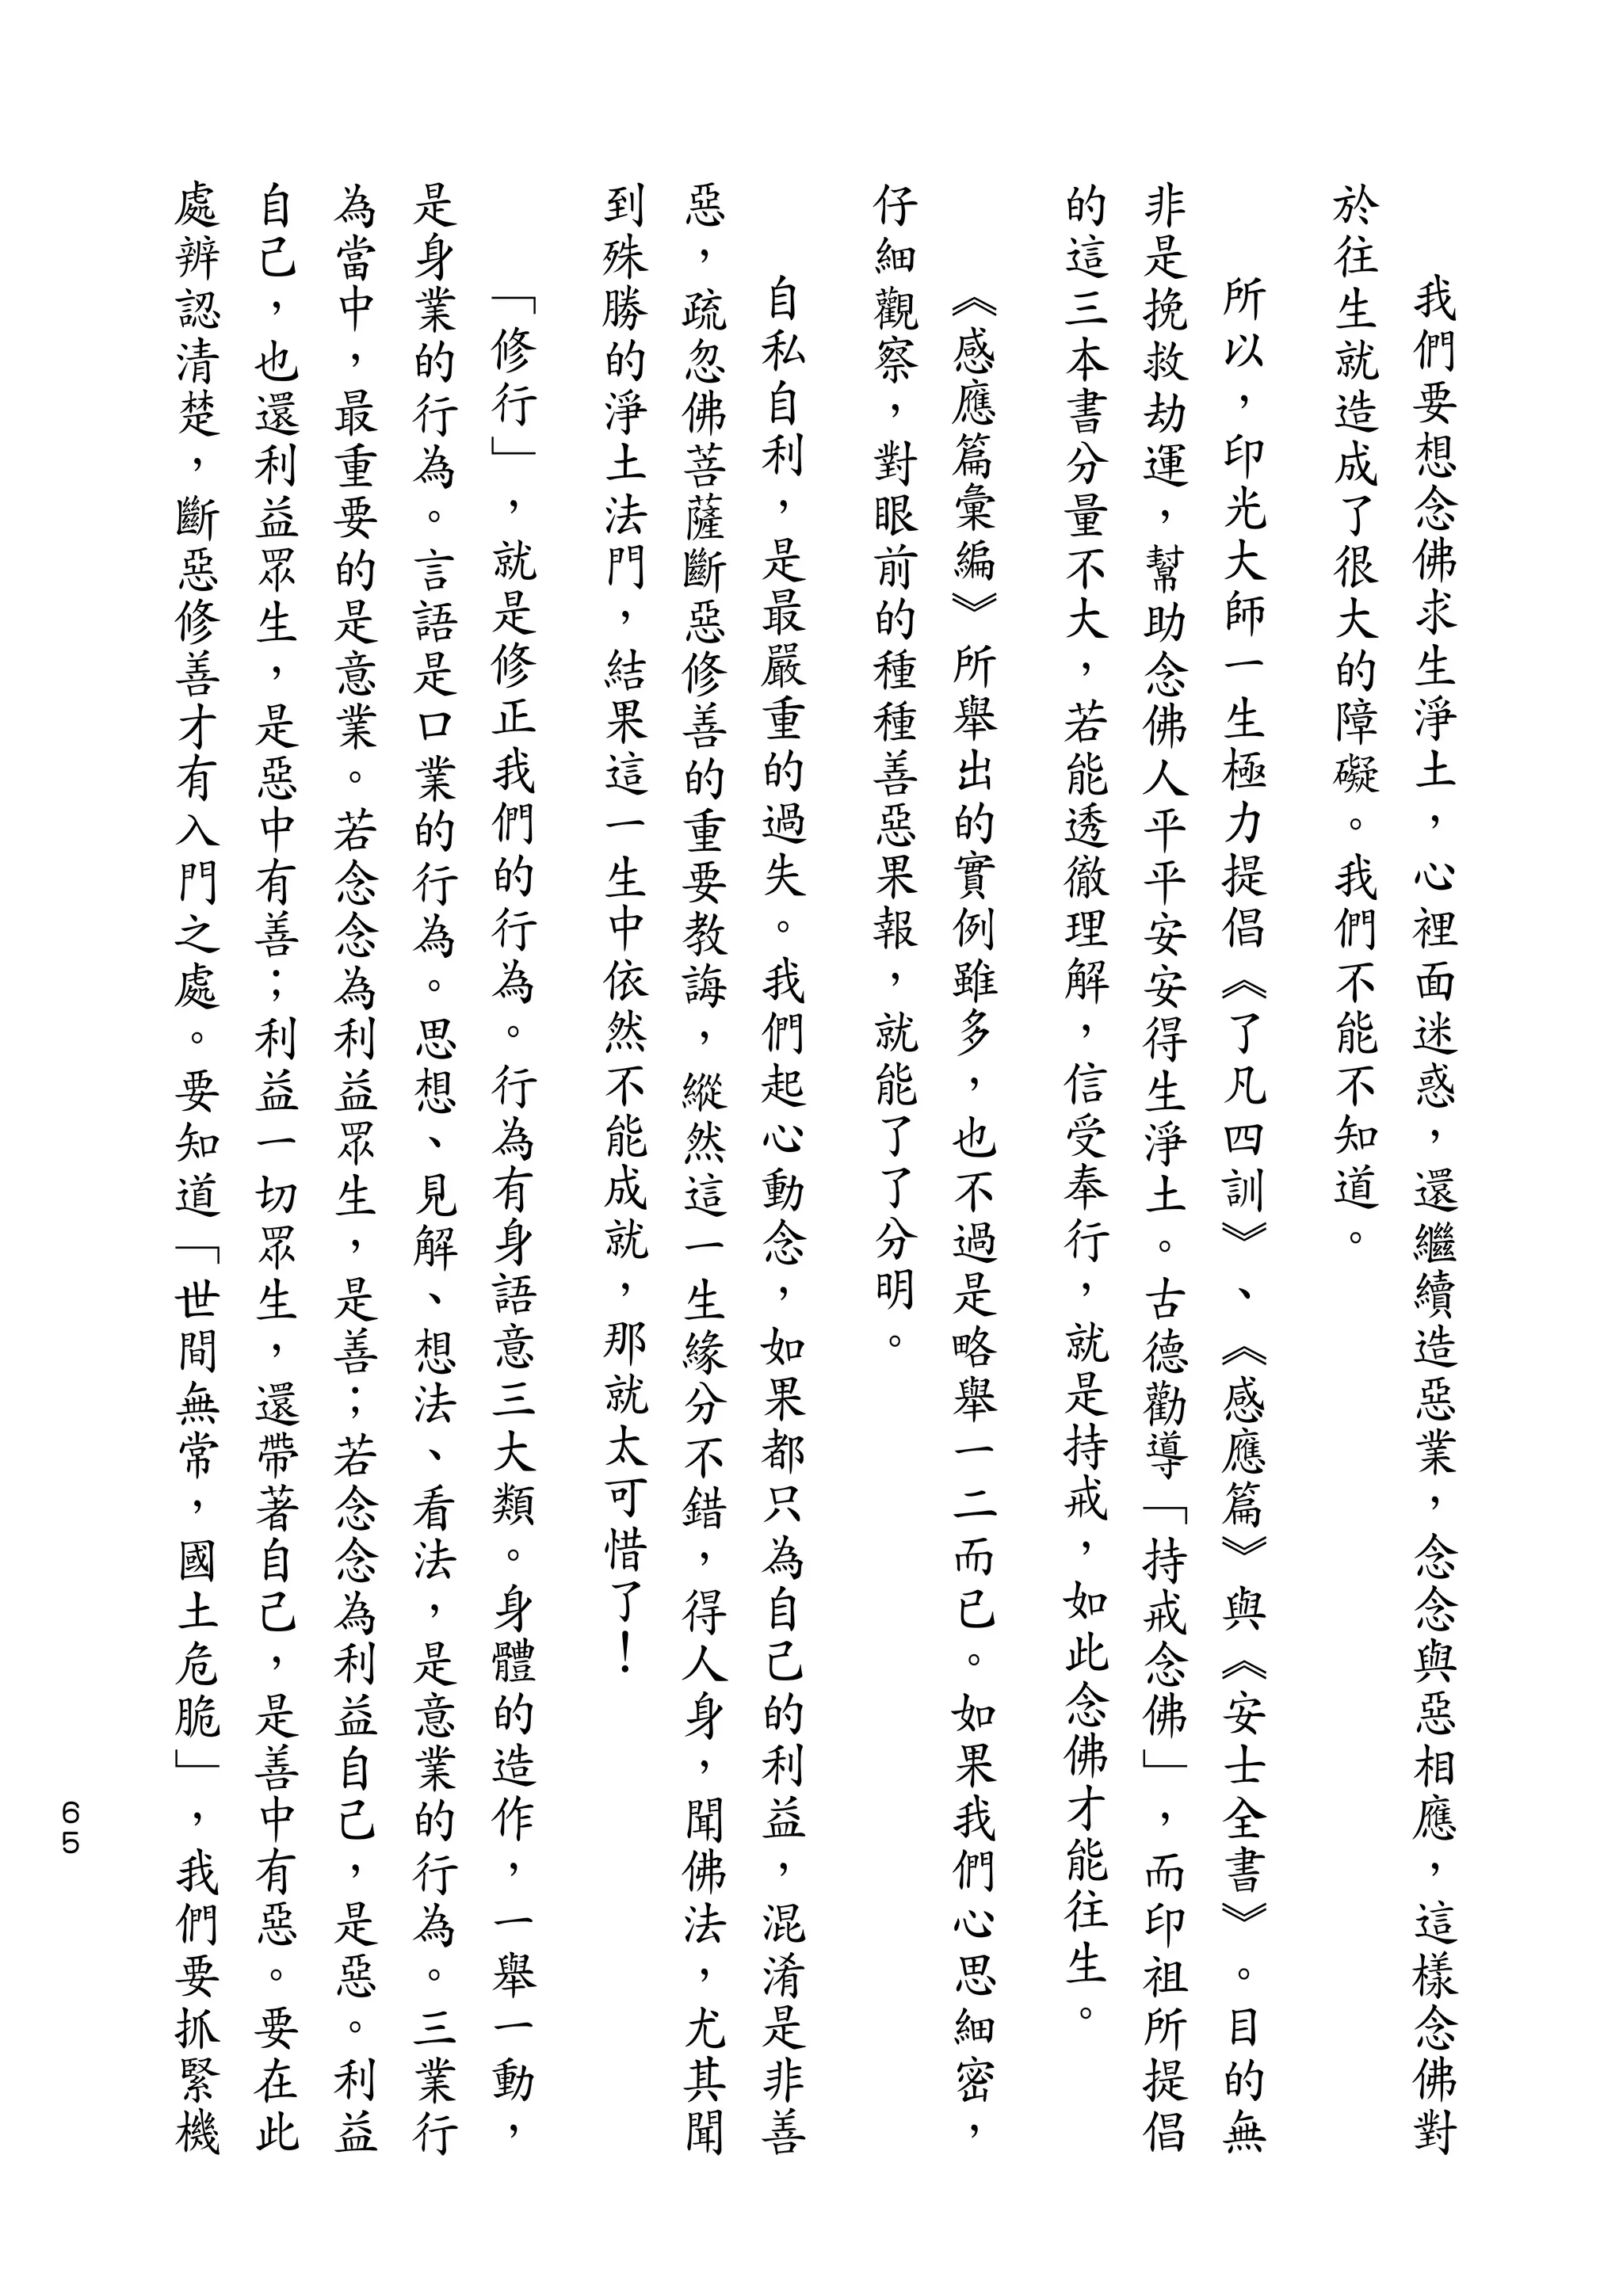 我們要想念佛求生淨土，心裡面迷惑，還繼續造惡業，念念與惡相應，這樣念佛對
於往生就造成了很大的障礙。我們不能不知道。
所以，印光大師一生極力提倡《了凡四訓》、《感應篇》與《安士全書》。目的無
非是挽救劫運，幫助念佛人平平安安得生淨土。古德勸導「持戒念佛」，而印祖所提倡
的這三本書分量不大，若能透徹理解，信受奉行，就是持戒，如此念佛才能往生。
《感應篇彙編》所舉出的實例雖多，也不過是略舉一二而已。如果我們心思細密，
仔細觀察，對眼前的種種善惡果報，就能了了分明。
自私自利，是最嚴重的過失。我們起心動念，如果都只為自己的利益，混淆是非善
惡，疏忽佛菩薩斷惡修善的重要教誨，縱然這一生緣分不錯，得人身，聞佛法，尤其聞
到殊勝的淨土法門，結果這一生中依然不能成就，那就太可惜了！
「修行」，就是修正我們的行為。行為有身語意三大類。身體的造作，一舉一動，
是身業的行為。言語是口業的行為。思想、見解、想法、看法，是意業的行為。三業行
為當中，最重要的是意業。若念念為利益眾生，是善；若念念為利益自己，是惡。利益
自己，也還利益眾生，是惡中有善；利益一切眾生，還帶著自己，是善中有惡。要在此
處辨認清楚，斷惡修善才有入門之處。要知道「世間無常，國土危脆」，我們要抓緊機
65